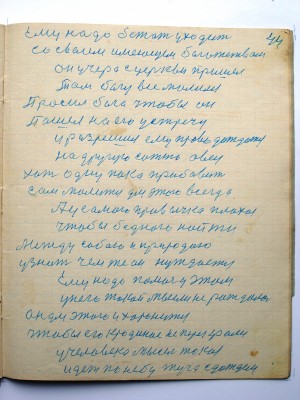 44
Ему надо бежать уходить
со своим имеющем богатством
он учера с церкви пришёл
Там богу все молился
Просил бога чтобы он
Пошел на его устречу
и разрешил ему
на другую сотню овец
хот одну пока прибавит
сам молится для этого всегда
А у самого привычка плохая
чтобы бедного найти
Между собою и природаю
узнат чем же он нуждается
Ему надо помог у этом
у него такой мысели не рождалос
он для этого и
чтобы его кюдиное не
у человека мысли такия
идет по небу туча с дождем